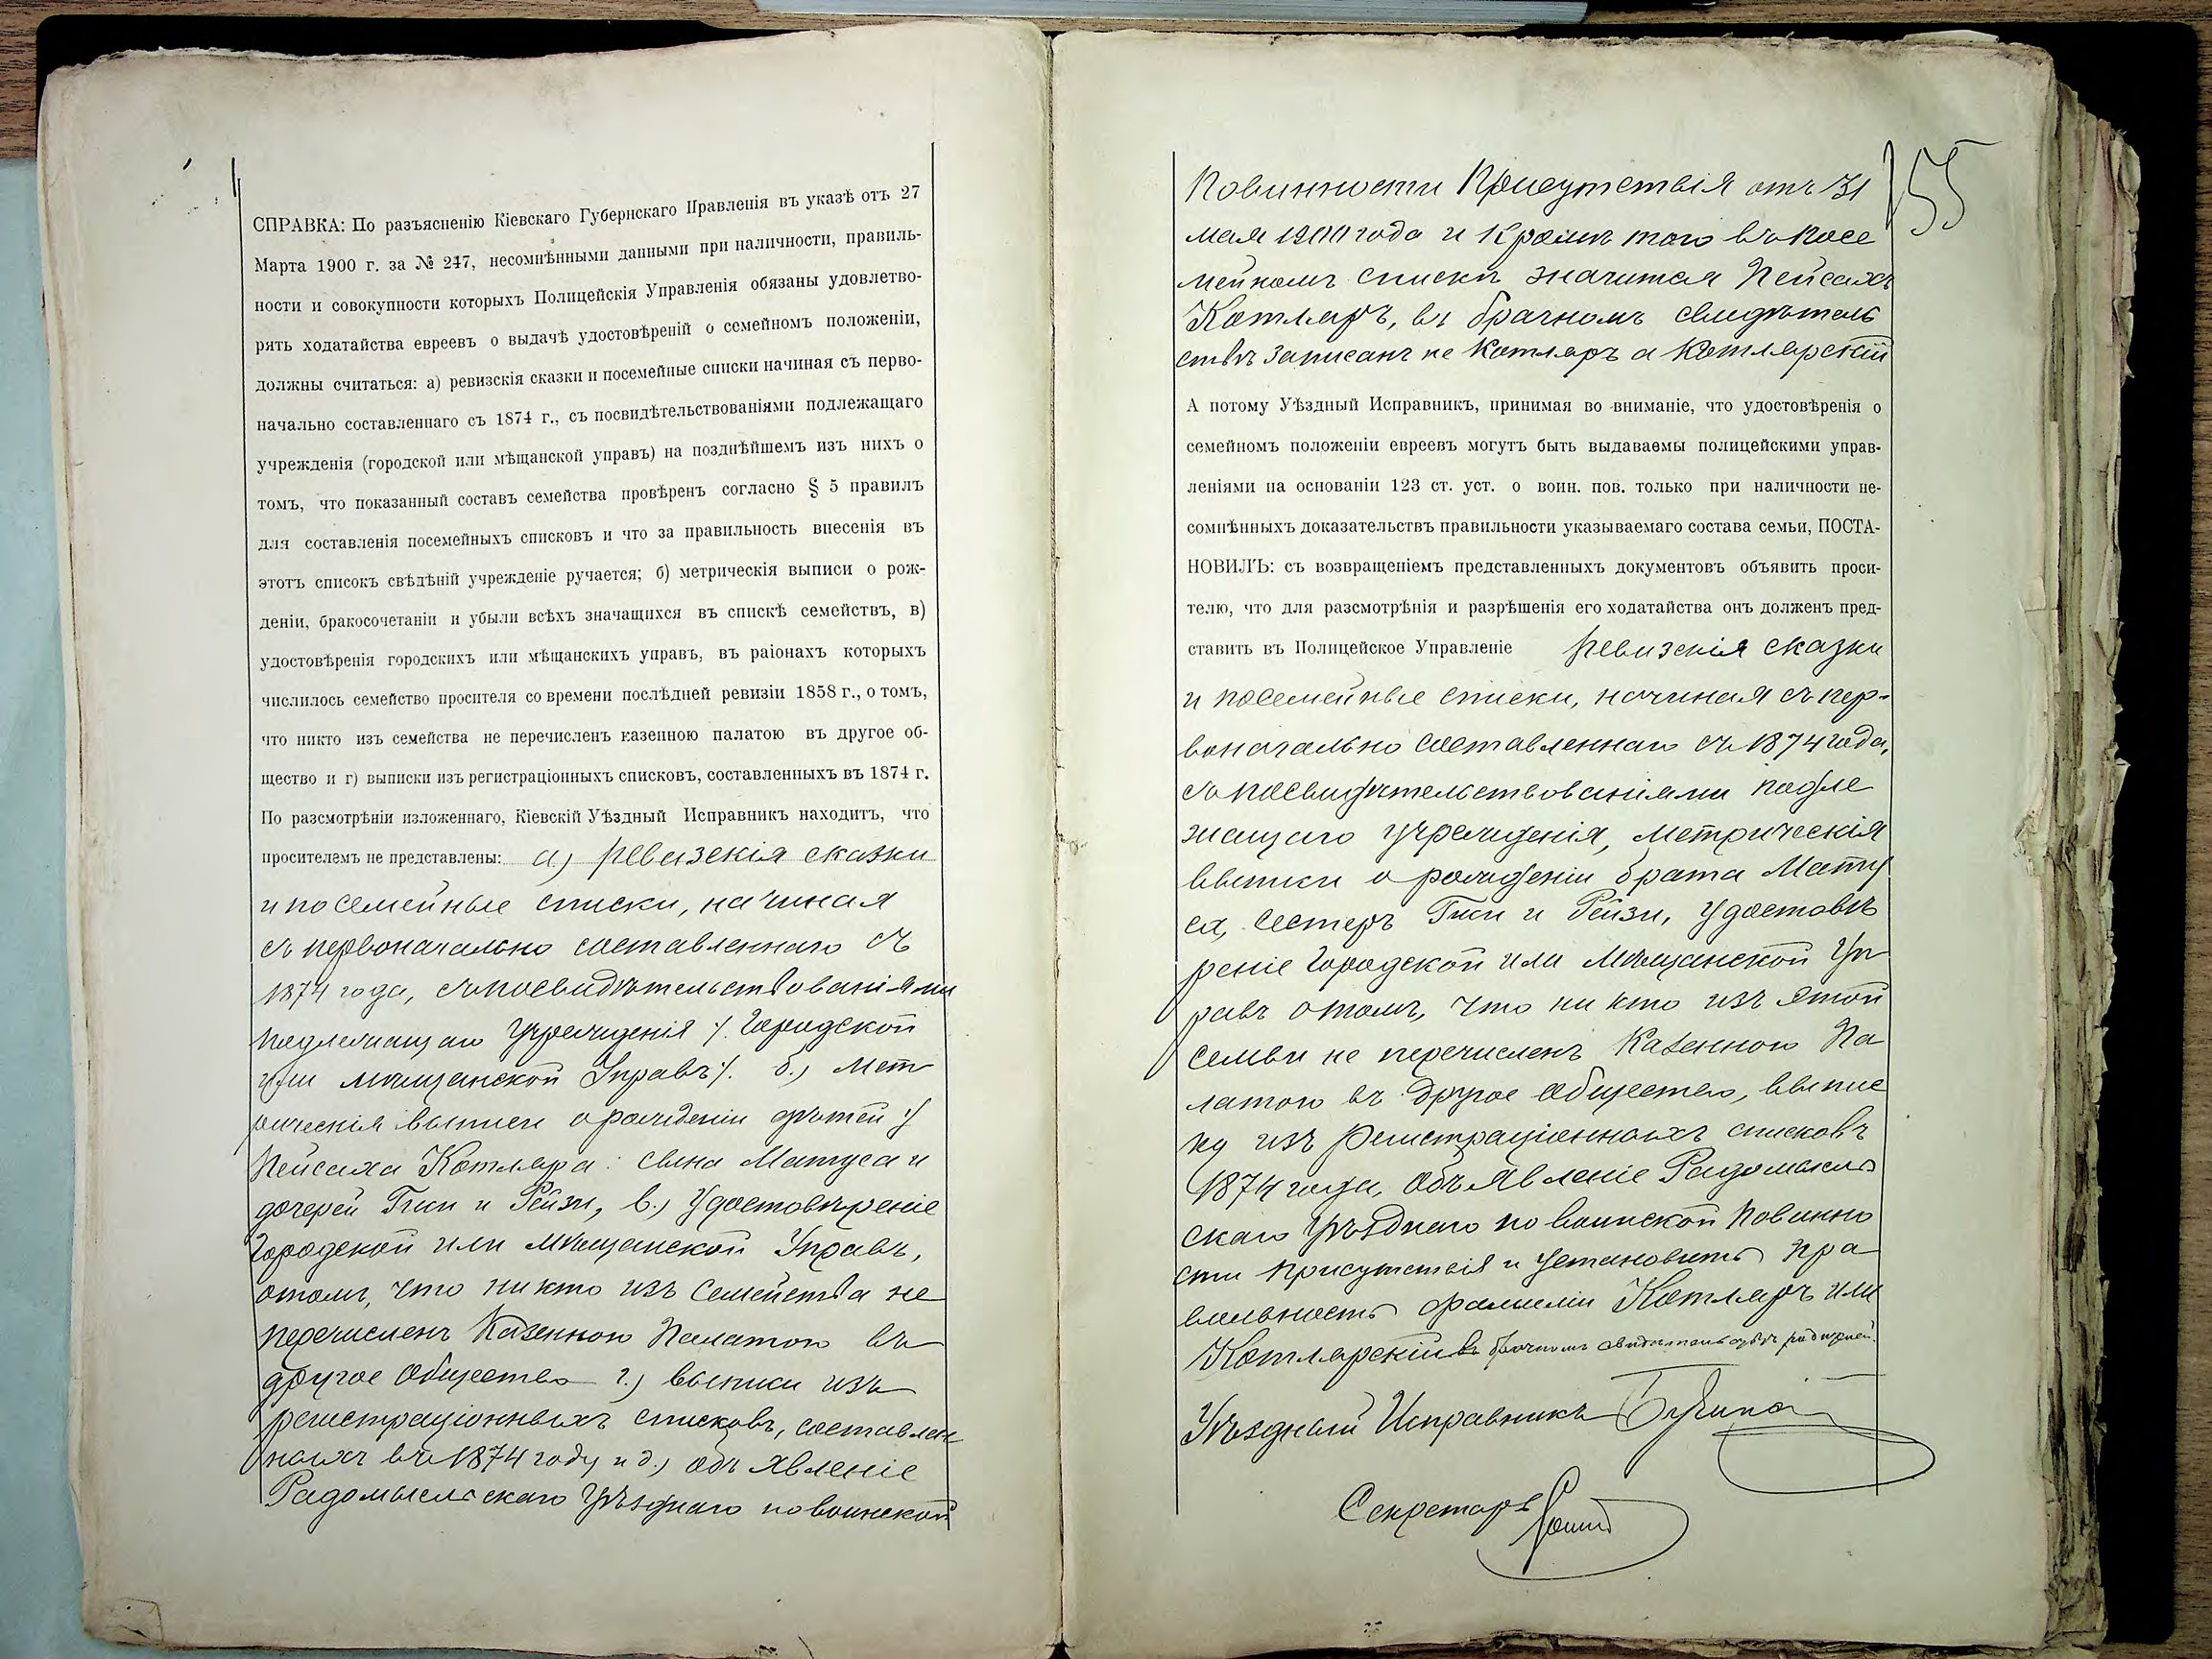 СПРАВКА: По разъясненію Кіевскаго Губернскаго Правленія въ указѣ отъ 27
Марта 1900 г. за № 247, несомнѣнными данными при наличности, правиль-
ности и совокупности которыхъ Полицейскія Управленія обязаны удовлетво-
рять ходатайства евреевъ о выдачѣ удостовѣреній о семейномъ положеніи,
должны считаться: а) ревизскія сказки и посемейные списки начиная съ перво-
начально составленнаго съ 1874 г., съ посвидѣтельствованіями подлежащаго
учрежденія (городской или мѣщанской управъ) на позднѣйшемъ изъ нихъ о
томъ, что показанный составъ семейства провѣренъ согласно § 5 правилъ
для составленія посемейныхъ списковъ и что за правильность внесенія въ
этотъ списокъ свѣдѣній учрежденіе ручается; б) метрическія выписи о рож-
деніи, бракосочетаніи и убыли всѣхъ значащихся въ спискѣ семействъ, в)
удостовѣренія городскихъ или мѣщанскихъ управъ, въ раіонахъ которыхъ
числилось семейство просителя со времени послѣдней ревизіи 1858 г., о томъ,
что никто изъ семейства не перечисленъ казенною палатою въ другое об-
щество и г) выписки изъ регистраціонныхъ списковъ, составленныхъ въ 1874 г.
По разсмотрѣніи изложеннаго, Кіевскій Уѣздный Исправникъ находитъ, что
просителемъ не представлены: а) ревизскія сказки
и посемейные списки, начиная
съ первоначально составленнаго съ
1874 года, съ посвидѣтельствованіями
подлежащаго Учрежденія /. Городской
или мѣщанской Управъ /. б.) Мет
рическія выписи о рожденіи дѣтей у
Пейсаха Котляра: сына Матуса и
дочерей Гиси и Рейзи, в.) Удостовѣреніе
Городской или мѣщанской Управъ,
отомъ, что никто изъ семейства не
перечисленъ Казенною Палатою въ
другое Общество г.) выписи изъ
регистраціонныхъ списковъ, составлен
ныхъ въ 1874 году и д.) объявленіе
Радомысльскаго Уѣзднаго по воинской
155
Повинности Присутствія отъ 31
мая 1900 года и Кромѣ того въ посе
мейномъ спискѣ значится Пейсахъ
Котляръ, въ брачномъ свидѣтель
ствѣ записанъ не Котляръ а Котлярскій
А потому Уѣздный Исправникъ, принимая во вниманіе, что удостовѣренія о
семейномъ положеніи евреевъ могутъ быть выдаваемы полицейскими управ-
леніями на основаніи 123 ст. уст. о воин. пов. только при наличности не-
сомнѣнныхъ доказательствъ правильности указываемаго состава семьи, ПОСТА-
НОВИЛЪ: съ возвращеніемъ представленныхъ документовъ объявить проси-
телю, что для разсмотрѣнія и разрѣшенія его ходатайства онъ долженъ пред-
ставить въ Полицейское Управленіе ревизскія сказки
и посемейные списки, начиная съ пер-
воначально составленнаго съ 1874 года,
съ посвидѣтельствованіями подле
жащаго учрежденія, метрическія
выписи о рожденіи брата Мату
са, сестеръ Гиси и Рейзи, Удостовѣ
реніе Городской или Мѣщанской Уп
равъ отомъ, что ни кто изъ этой
семьи не перечисленъ Казенною Па
латою въ другое Общество, выпис
ку изъ регистраціонныхъ списковъ
1874 года, Объявленіе Радомысль
скаго Уѣзднаго по воинской повинно
сти Присутствія и установить пра
вильность фамиліи Котляръ или
Котлярскій въ брачномъ свидѣтельствѣ родителей.
Уѣздный Исправникъ
Секретарь